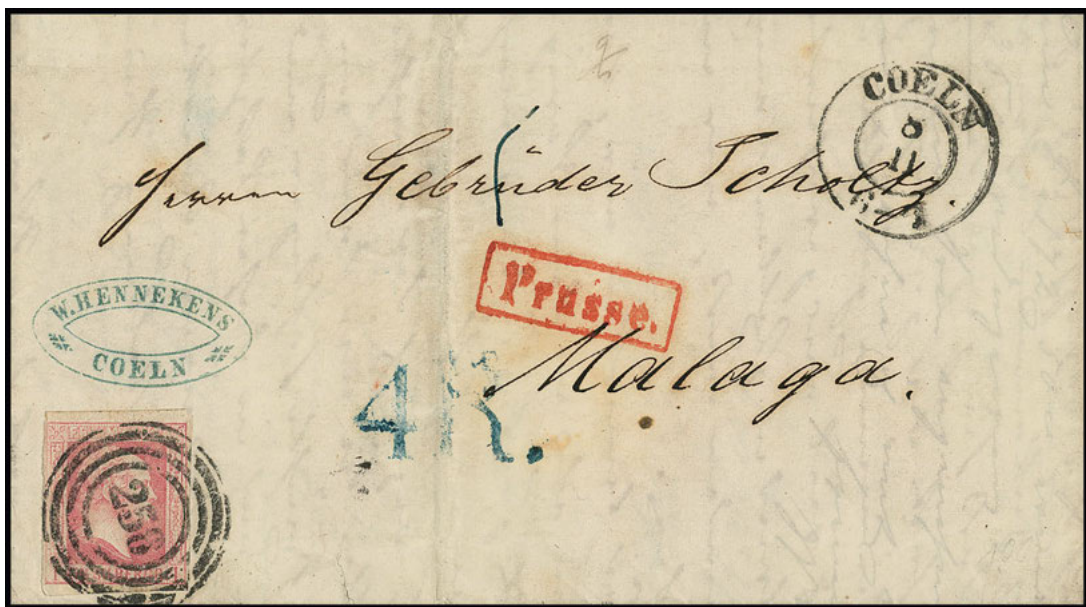 COELN
8
11
6-7
Herren Gebrüder Scholtz.
Prusse.
W. HENNEKENS
COELN
Malaga.
4R.
259